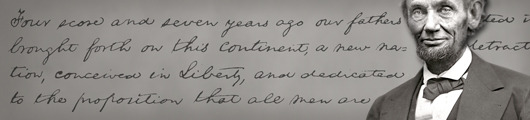 Four score and seven years ago our fathers
brought forth on this continent, a new na-
tion, conceived in Liberty, and dedicated
to the proposition that all men are